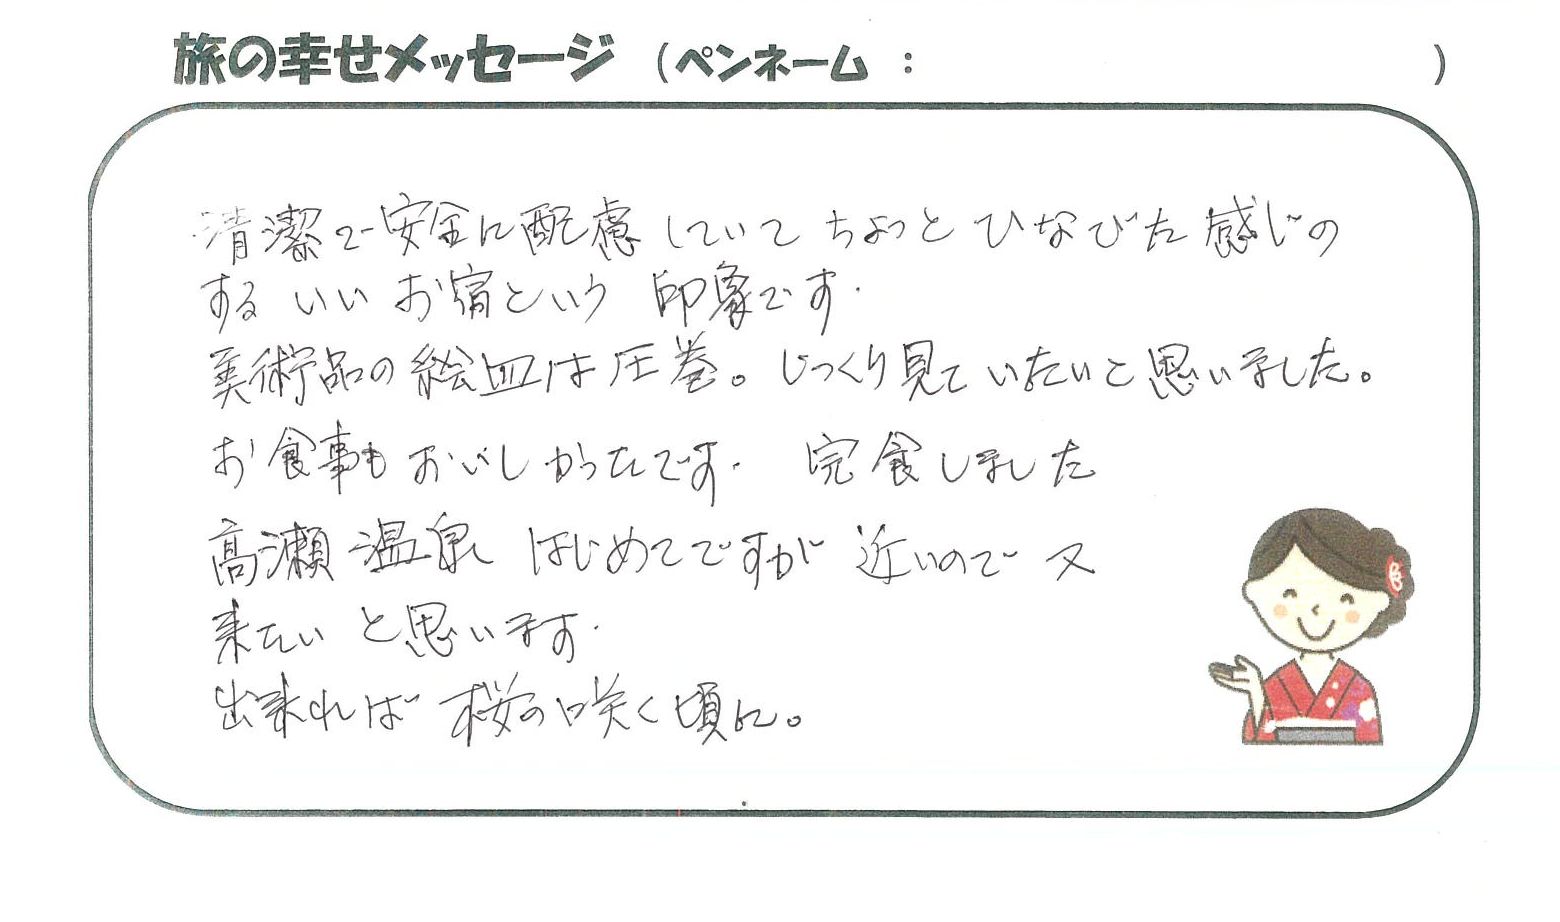 旅の幸せメッセージ (ペンネーム : )
清潔で安全に配慮していて ちょっと ひなびた 感じの
する いい お宿という 印象です.
美術品の絵皿は圧巻。じっくり見ていたいと思いました。
お食事もおいしかったです. 完食しました
高瀬温泉 はじめてですが 近いので 又
来たい と思います.
出来れば 桜の咲く頃に。